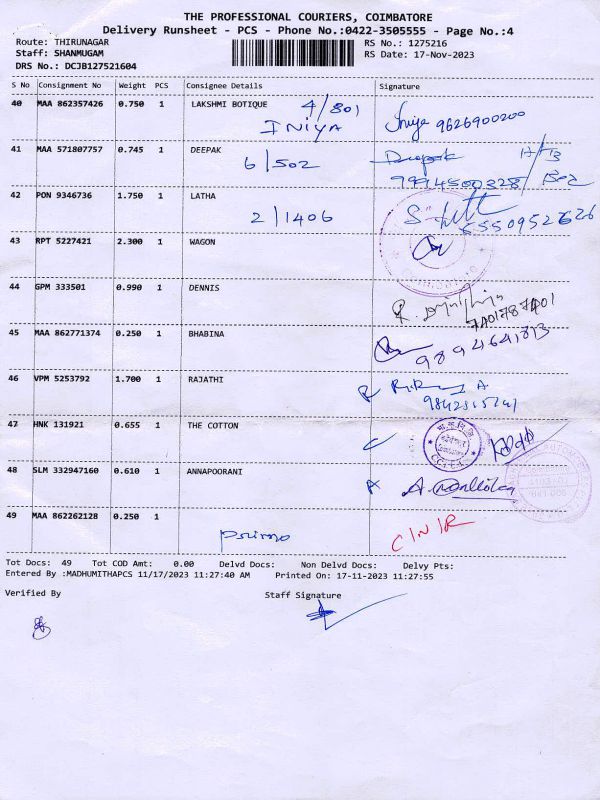 THE PROFESSIONAL COURIERS, COIMBATORE
Delivery Runsheet - PCS - Phone No.:0422-3505555 - Page No.:4
Route: THIRUNAGAR RS No.: 1275216
Staff: SHANMUGAM RS Date: 17-Nov-2023
DRS No.: DCJB127521604
S No Consignment No Weight PCS Consignee Details Signature
40 MAA 862357426 0.750 1 LAKSHMI BOTIQUE 4/801
INIYA 9626900200
41 MAA 571807757 0.745 1 DEEPAK Deepak
6/502
42 PON 9346736 1.750 1 LATHA
2/1406
43 RPT 5227421 2.300 1 WAGON
44 GPM 333501 0.990 1 DENNIS
7401787401
45 MAA 862771374 0.250 1 BHABINA
9894641813
46 VPM 5253792 1.700 1 RAJATHI
47 HNK 131921 0.655 1 THE COTTON
48 SLM 332947160 0.610 1 ANNAPOORANI
49 MAA 862262128 0.250 1
C/N/R
Tot Docs: 49 Tot COD Amt: 0.00 Delvd Docs: Non Delvd Docs: Delvy Pts:
Entered By :MADHUMITHAPCS 11/17/2023 11:27:40 AM Printed On: 17-11-2023 11:27:55
Verified By Staff Signature